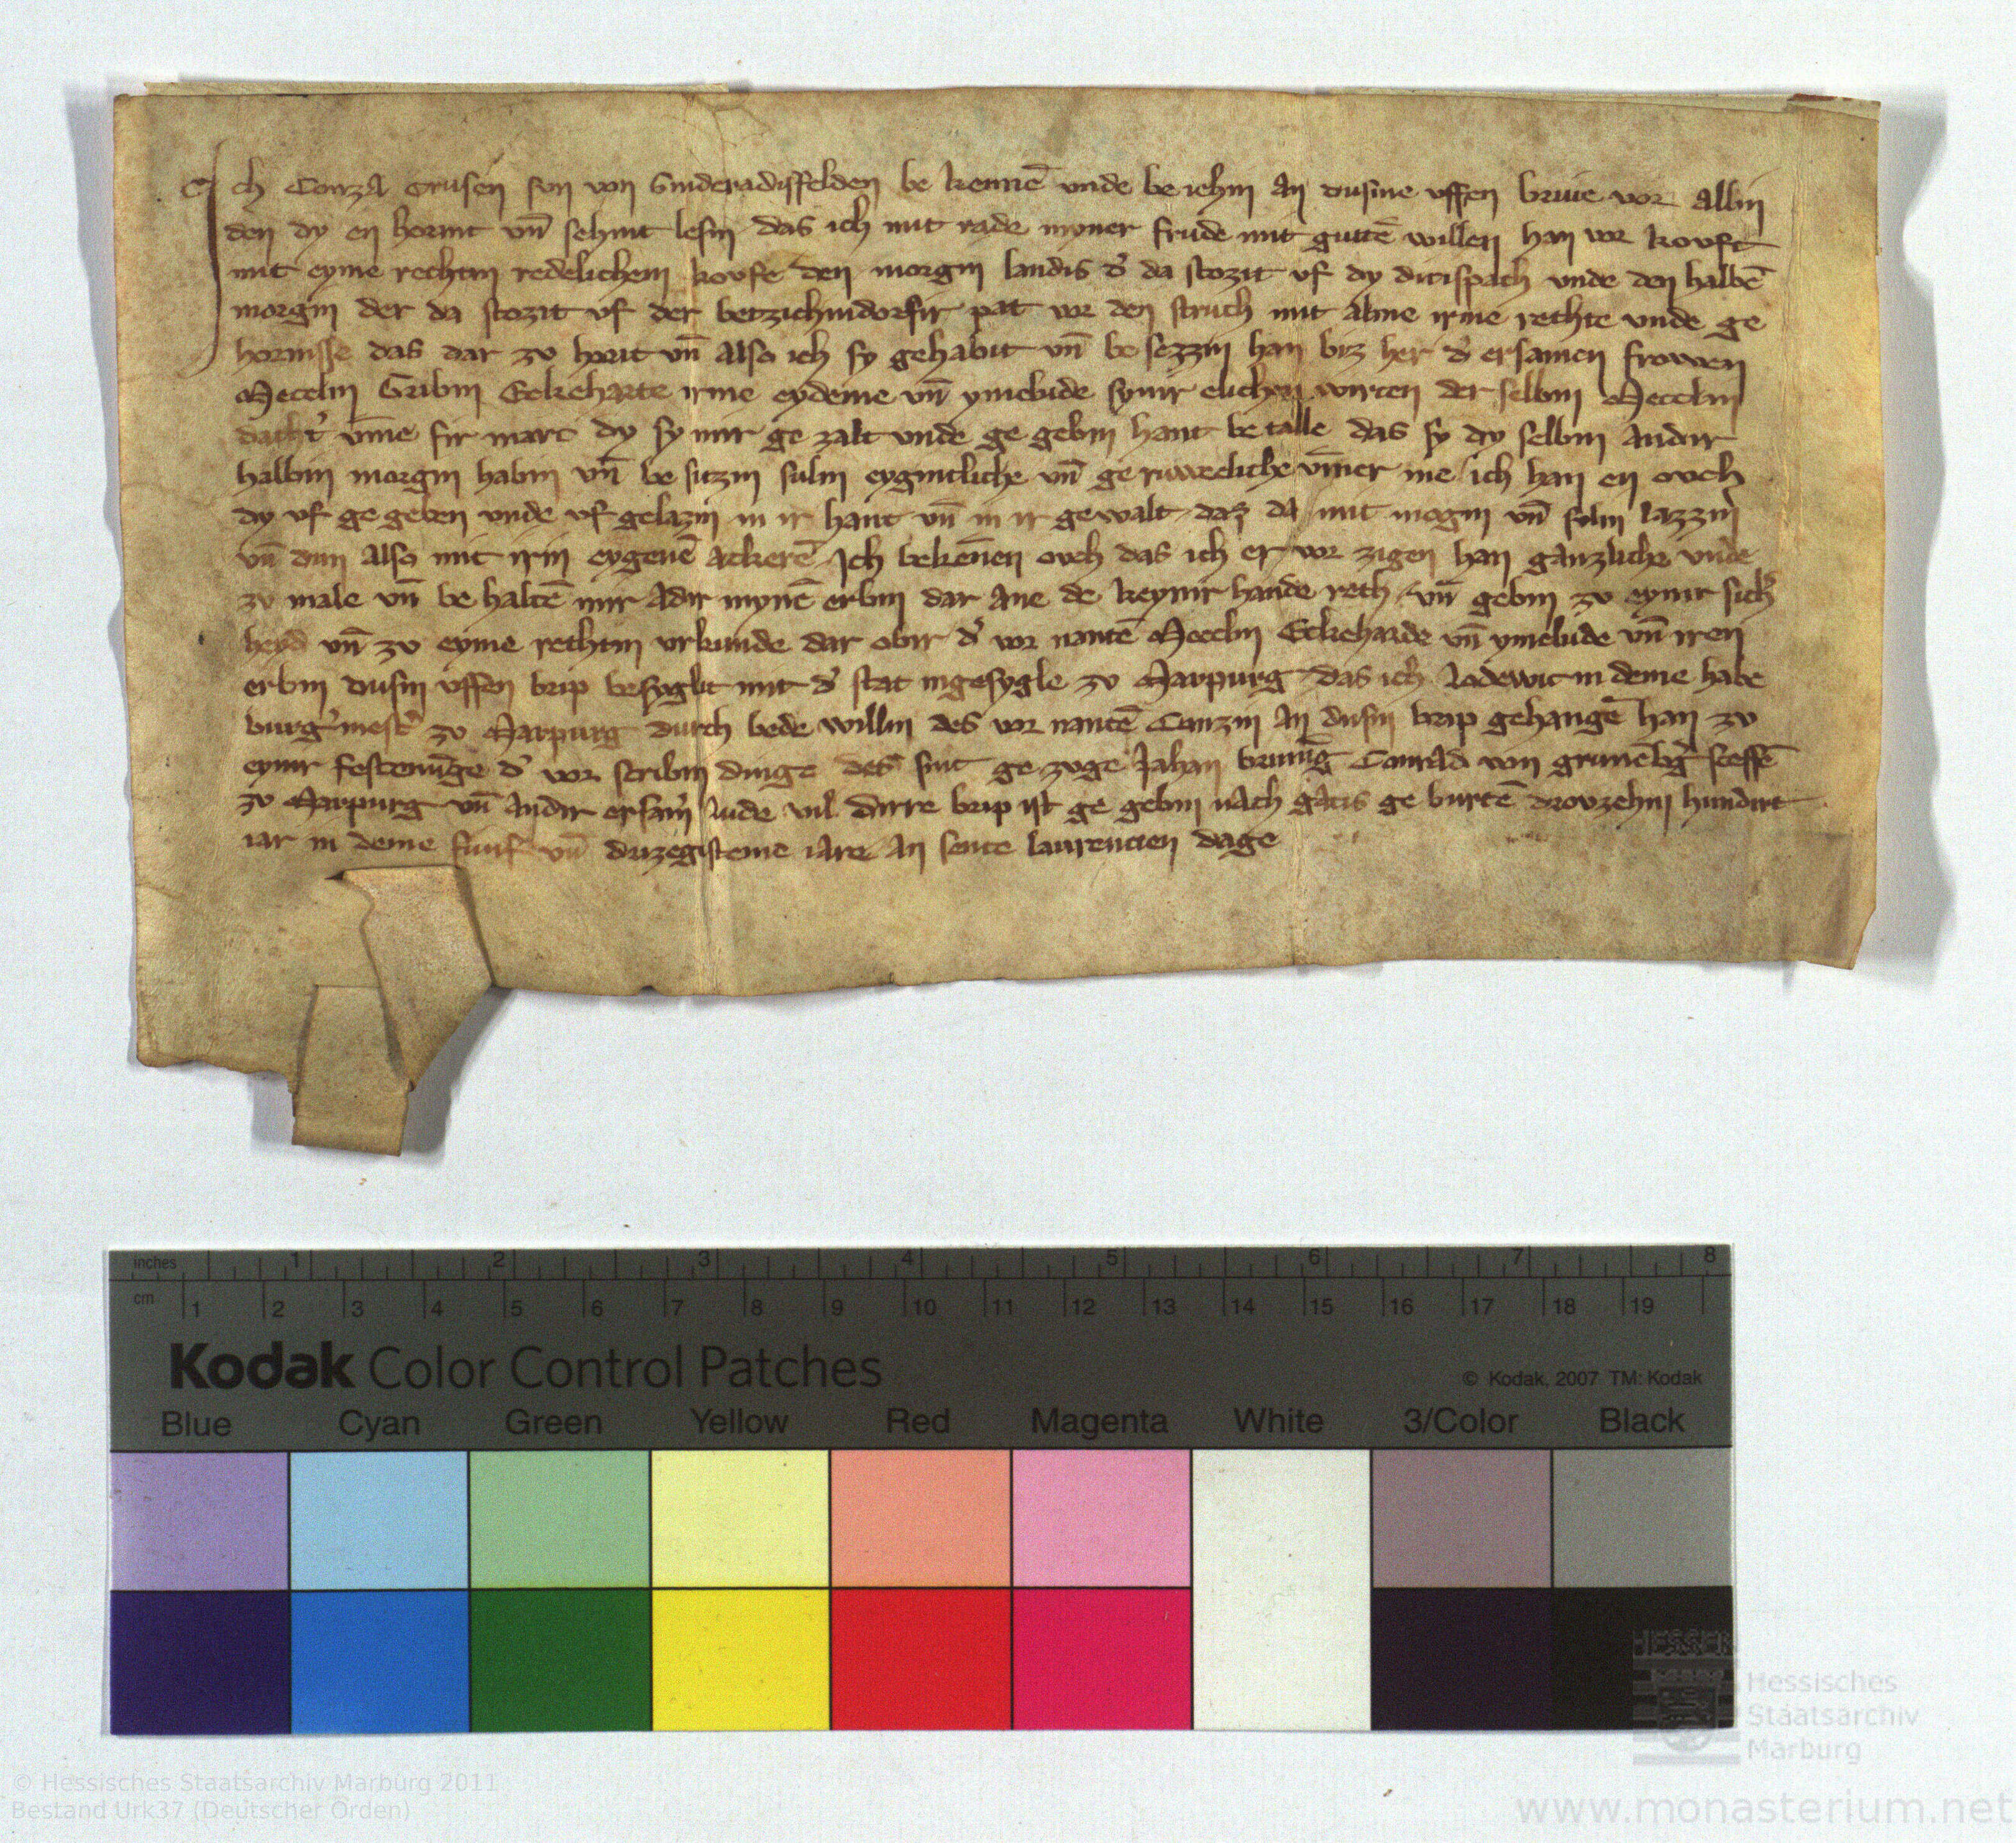 Ich Conza Crusen son von Gunderadisffelden be kennē vnde be iehin an dusme vffen briue vor allin
den dy en horint vn̄ sehint lesin das ich mit rade myner frude mit gutē willen han vor kouft
mit eyme rechtin redelichem koufe den morgin landis d' da stozit vf dy ditispach vnde den halbē
morgin der da stozit vf der betzichindorfir pat vor den struch mit alme irme rechte vnde ge
hornisse das dar zv horit vn̄ also ich sy gehabit vn̄ be sezzin han biz her d' ersamen frowen
Mecelin Gribin Eckeharte irme eydeme vn̄ ymelude synir elichen wirten der selbin Mecelin
dacht' vm̄e fir marc dy sy mir ge zalt vnde ge gebin hant be talle das sy dy selbin andir
halbin morgin habin vn̄ be sitzin suln eygintliche vn̄ ge ruweclithe vm̄er me ich han en ouch
dy vf ge geben vnde vf gelazin in ir hant vn̄ in ir gewalt daz da mit mogin vn̄ soln lazzin
vn̄ dun also mit irin eygenē ackerē Ich beken̄en ouch das ich er vor zigen han ganzliche vnde
zv male vn̄ be haltē mir adir mynē erbin dar ane de keynir hande reth vn̄ gebin zv eynir sich'
heyd vn̄ zv eyme rethtin vrkunde dar obir d' vor nantē Mecelin Eckeharde vn̄ ymelude vn̄ iren
erbin dusin vffen brip besyglit mit d' stat ingesygle zv Marpurg das ich Lodewic in deme habe
burg'mest' zv Marpurg durch bede willin des vor nantē Conzin an dusin brip gehangē han zv
eynir festenūge d' vor scribin dinge des sint ge zuge Jahan brunīg Conrad von grunēb'g sceffē
zv Marpurg vn̄ andir ersam̄ lude vil dirre brip ist ge gebin nach gatis ge burtē drouzehin hundirt
iar in deme funf vn̄ druzegisteme iare an sente laurencien dage
inches 1 2 3 4 5 6 7 8
cm 1 2 3 4 5 6 7 8 9 10 11 12 13 14 15 16 17 18 19
Kodak Color Control Patches
© Kodak, 2007 TM: Kodak
Blue Cyan Green Yellow Red Magenta White 3/Color Black
HESSEN
Hessisches
Staatsarchiv
Marburg
© Hessisches Staatsarchiv Marburg 2011
Bestand Urk37 (Deutscher Orden)
www.monasterium.net